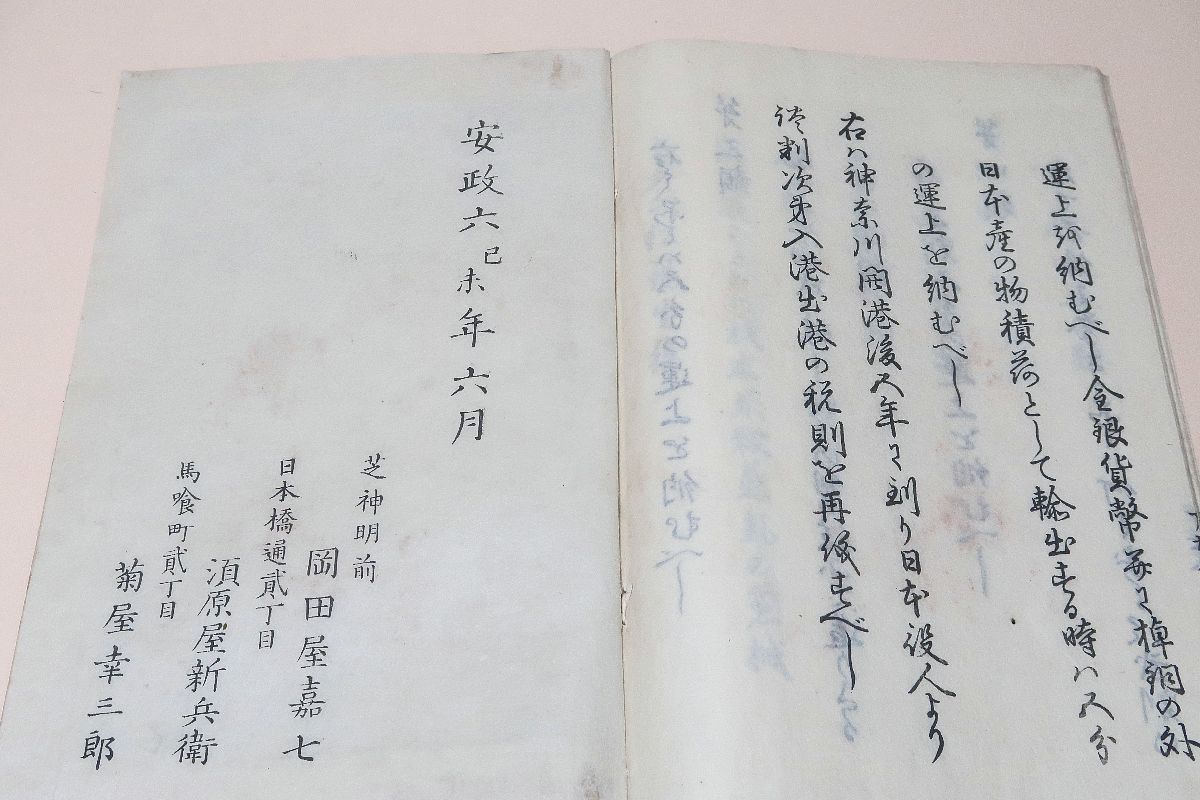 運上を納むべし金銀貨幣并に棹銅の外
日本産の物積荷として輸出する時ハ五分
の運上を納むべし
右ハ神奈川開港後五年に到り日本役人より
談判次第入港出港の税則を再議すべし
安政六己未年六月
芝神明前
岡田屋嘉七
日本橋通貳丁目
須原屋新兵衛
馬喰町貳丁目
菊屋幸三郎